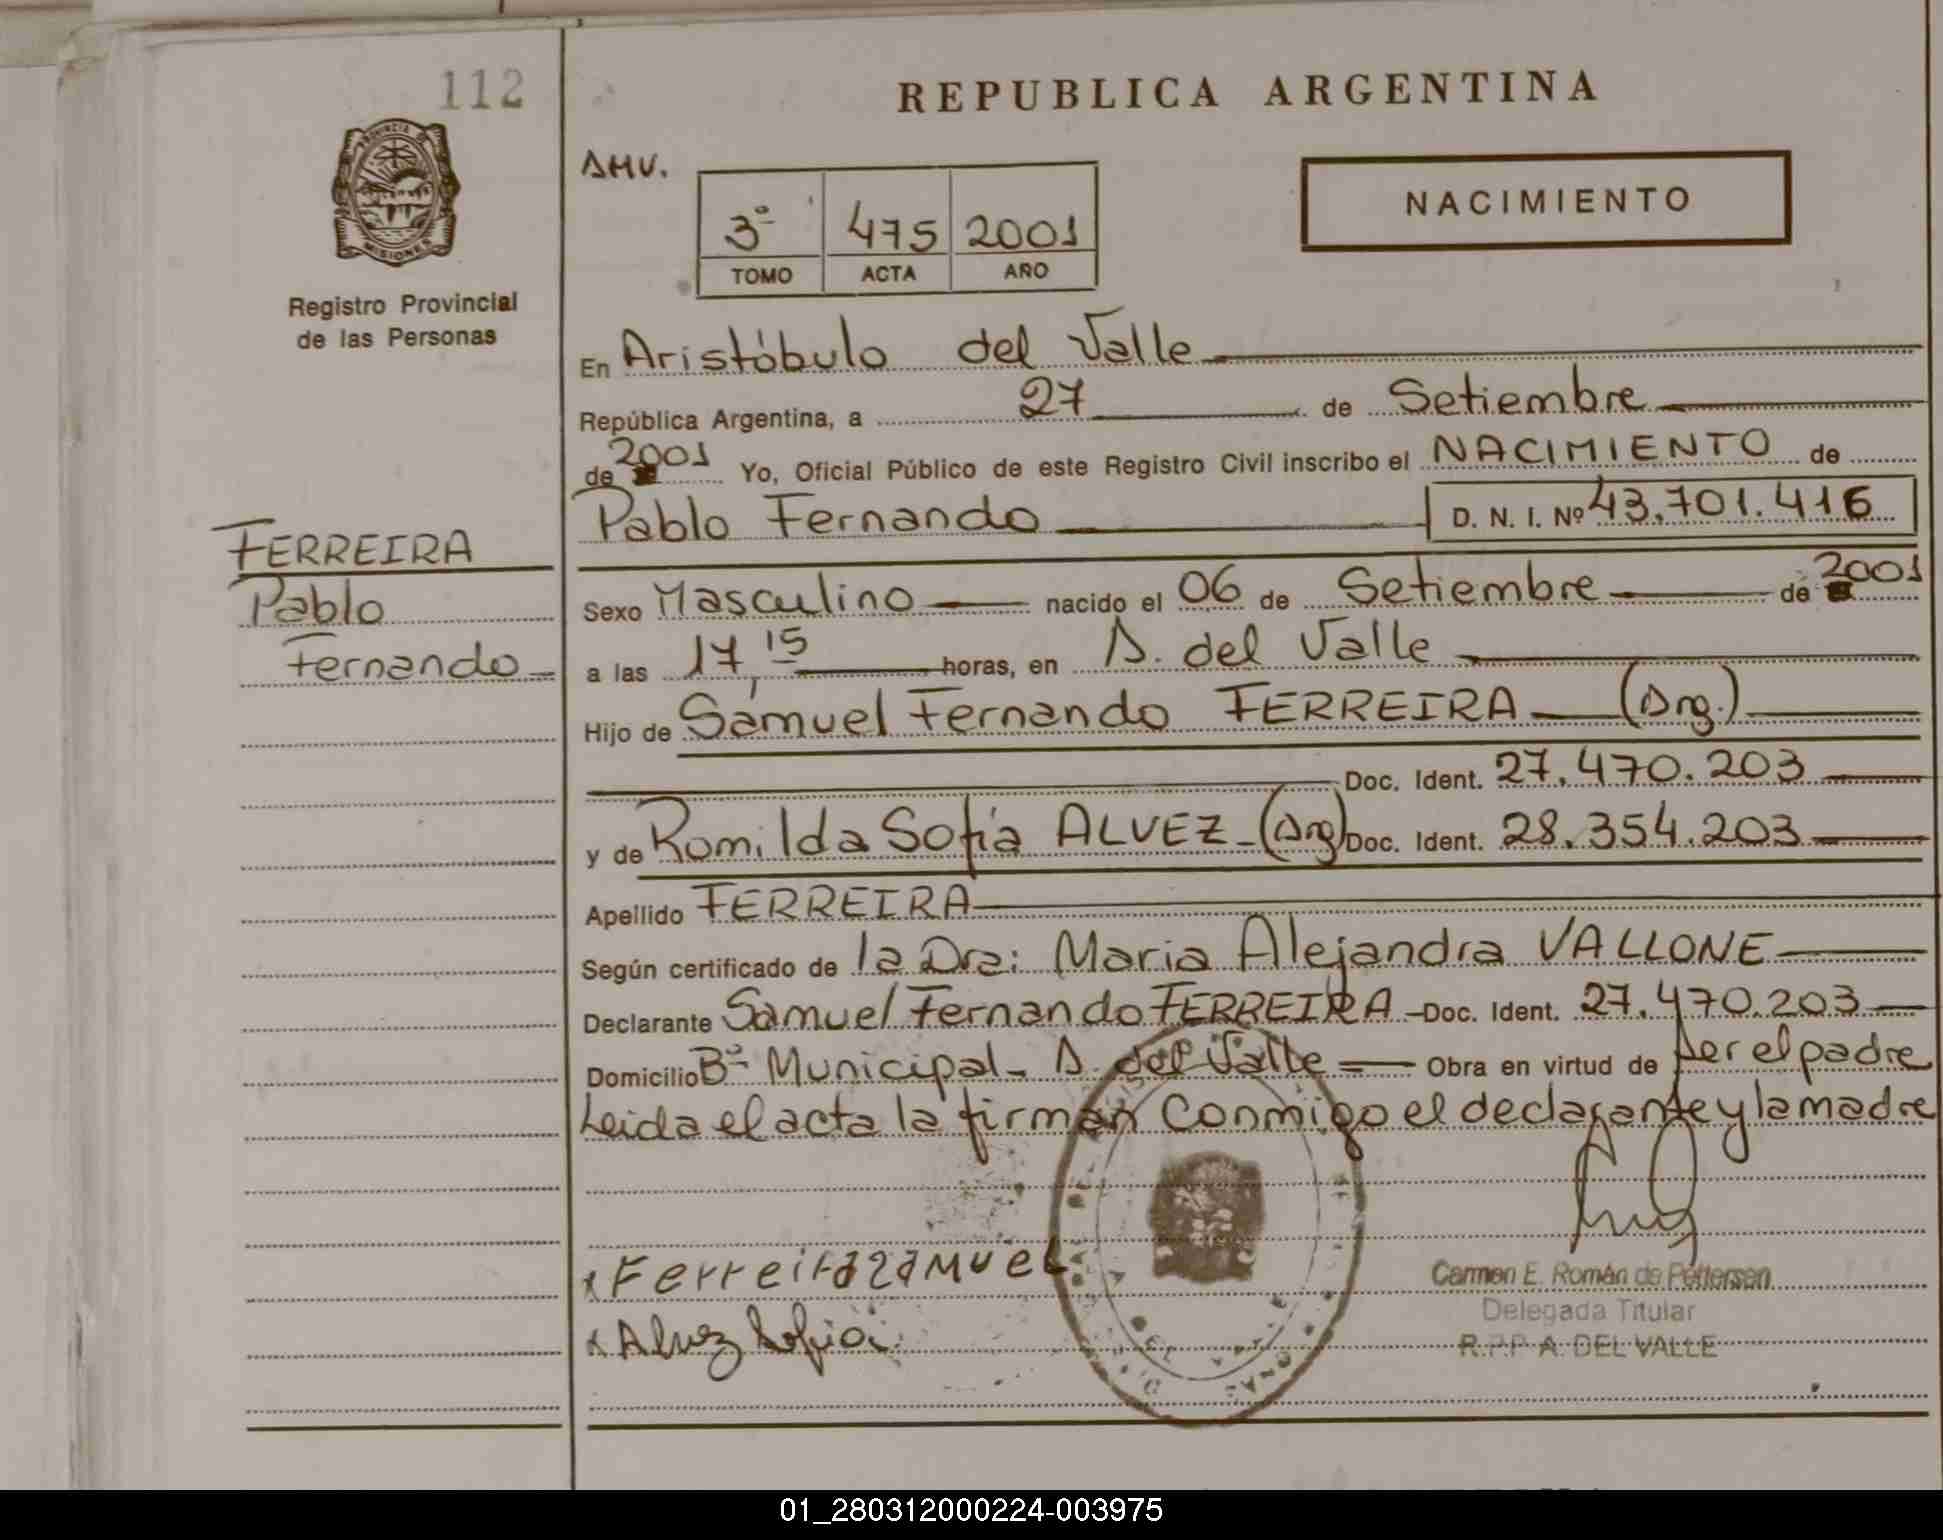 112
PROVINCIA DE
MISIONES
Registro Provincial
de las Personas
REPUBLICA ARGENTINA
AMV.
NACIMIENTO
3º 475 2001
TOMO ACTA AÑO
En Aristóbulo del Valle
República Argentina, a 27 de Setiembre
de 2001 Yo, Oficial Público de este Registro Civil inscribo el NACIMIENTO de
Pablo Fernando D. N. I. Nº 43.701.416
FERREIRA
Pablo
Fernando
Sexo Masculino nacido el 06 de Setiembre de 2001
a las 17,15 horas, en A. del Valle
Hijo de Samuel Fernando FERREIRA (Arg.)
Doc. Ident. 27.470.203
y de Romilda Sofía ALVEZ - (Arg) Doc. Ident. 28.354.203
Apellido FERREIRA
Según certificado de la Dra: Maria Alejandra VALLONE
Declarante Samuel Fernando FERREIRA - Doc. Ident. 27.470.203
Domicilio Bº Municipal - A. del Valle Obra en virtud de ser el padre
Leida el acta la firman conmigo el declarante y la madre
x Ferreira Samuel
x Alvez Sofia
Carmen E. Román de Pettersen
Delegada Titular
R.P.P. A. DEL VALLE
01_280312000224-003975